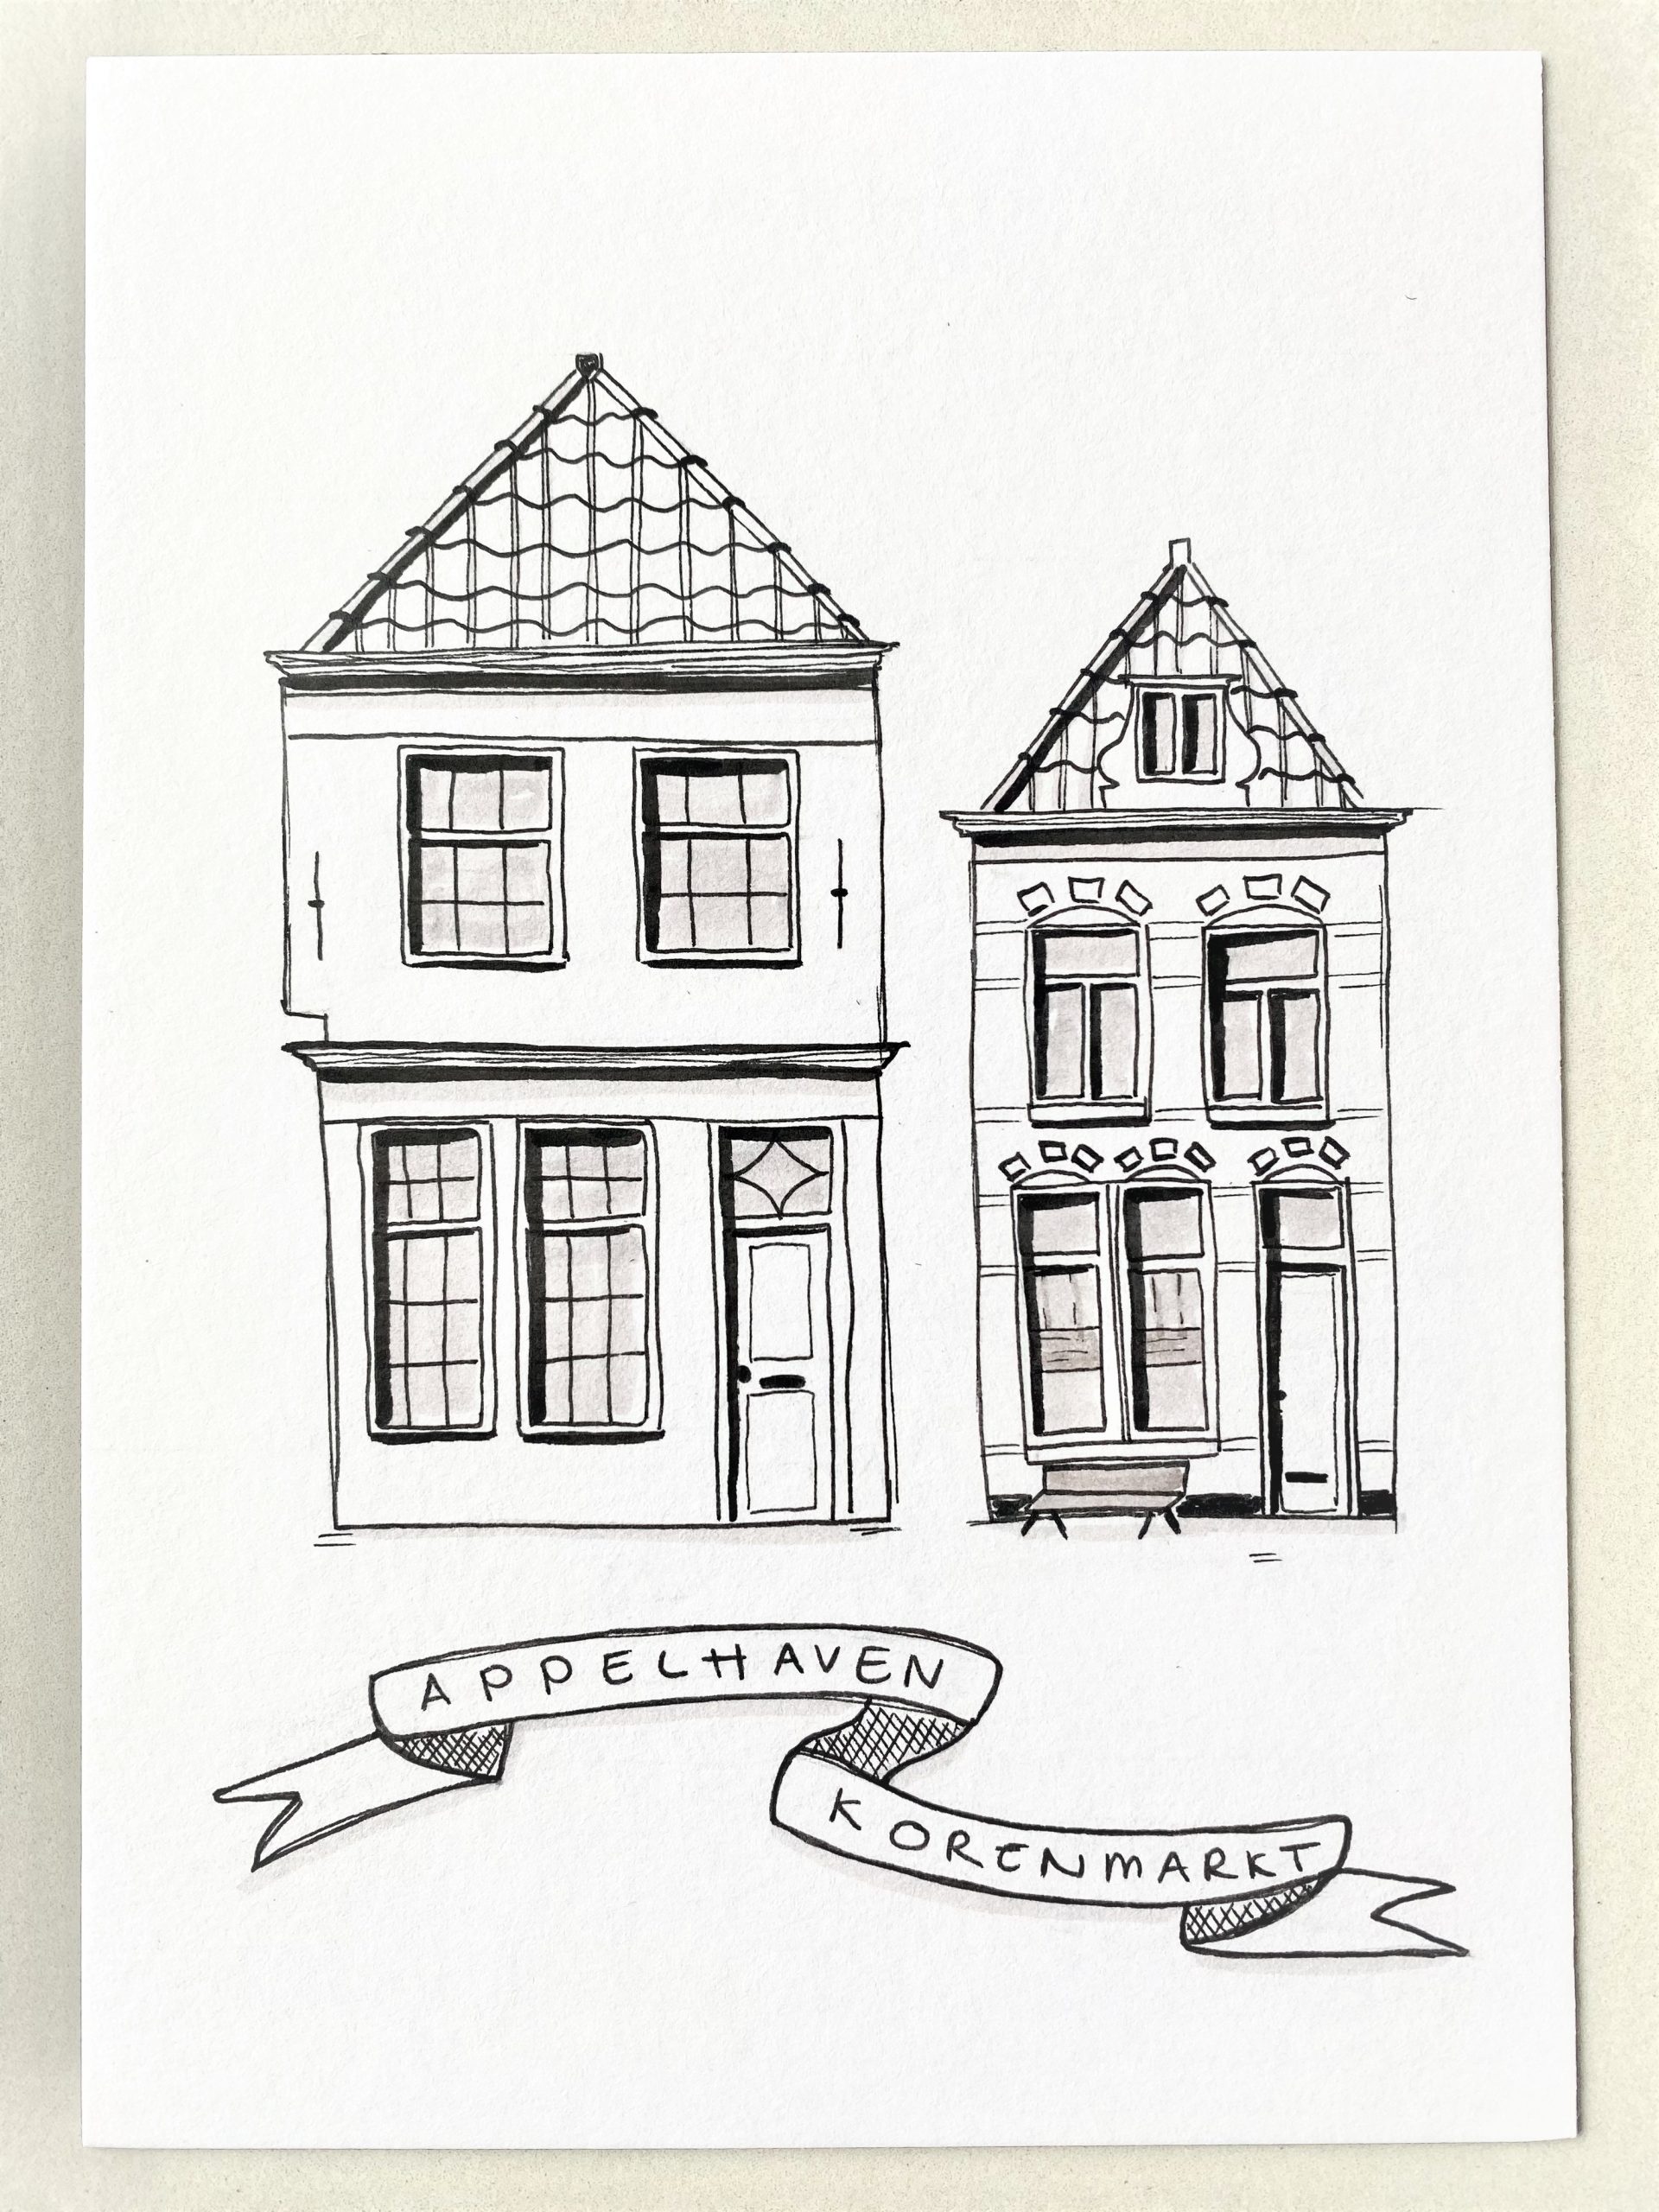 APPELHAVEN
KORENMARKT